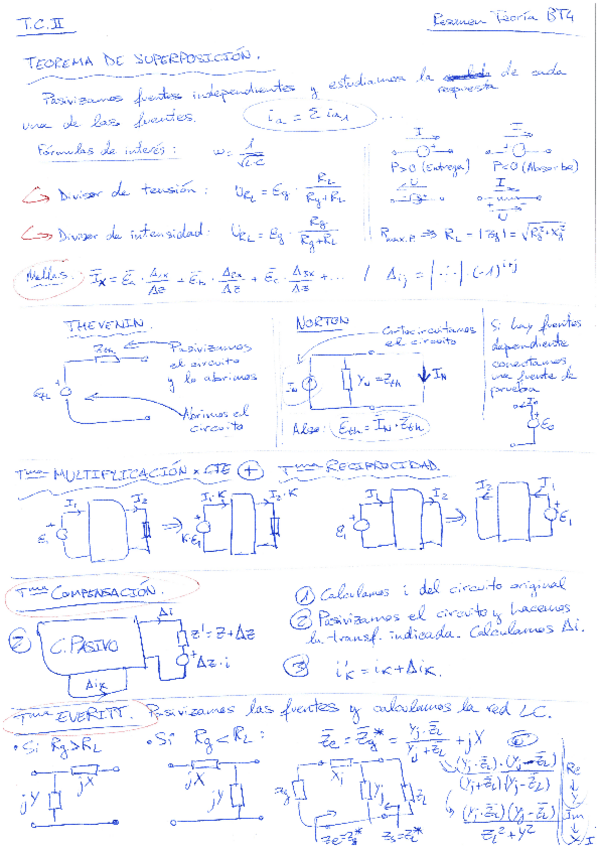 T.C.II
Resumen Teoría BT4
TEOREMA DE SUPERPOSICIÓN.
Pasivizamos fuentes independientes y estudiamos la respuesta de cada
una de las fuentes.
i_a = Σ i_a1 ...
Fórmulas de interés: ω = 1/√LC
I
P>0 (Entrega)
I
P<0 (Absorbe)
Divisor de tensión: U_RL = Eg · R_L/(Rg+R_L)
U
I
U
Divisor de intensidad: U_RL = Eg · Rg/(Rg+R_L)
Pmax.P ⇒ R_L = |Zg| = √(Rg²+Xg²)
Mallas:
/ Δij = |∴| · (-1)^(i+j)
THEVENIN.
Zth
Pasivizamos
el circuito
y lo abrimos
Eth
+
Abrimos el
circuito
NORTON
Cortocircuitamos
el circuito
I_N
Y_N = Zth
I_N
Algo: Ēth = Ī_N · Z̄th
Si hay fuentes
dependiente
conectamos
una fuente de
prueba
I₀
+
E₀
Tma MULTIPLICACIÓN x CTE + Tma RECIPROCIDAD.
I₁ I₂ + E₁ ⇒ I₁·K I₂·K + K·E₁
I₁ I₂ + E₁ ⇒ I₂ I₁ + E₁
Tma COMPENSACIÓN.
① Calculamos i del circuito original
② Pasivizamos el circuito y hacemos
la transf. indicada. Calculamos Δi.
③ i'k = ik + Δik.
②
C. PASIVO
Δi
Z' = Z+ΔZ
+ ΔZ·i
Δik
Tma EVERITT. Pasivizamos las fuentes y calculamos la red LC.
• Si Rg>R_L
• Si Rg<R_L:
jX
jY
jX
jY
Z̄e = Z̄g* = (Yj · Z̄_L)/(Yj + Z̄_L) + jX
Zg
Xj
Yj
Z_L
Ze=Zg*
Zs=Z_L*
(Yj·Z̄_L)·(Yj-Z̄_L)/(Yj+Z̄_L)(Yj-Z̄_L)
(Yj·Z̄_L)(Yj-Z̄_L)/Z_L²+Y²
Re
Im